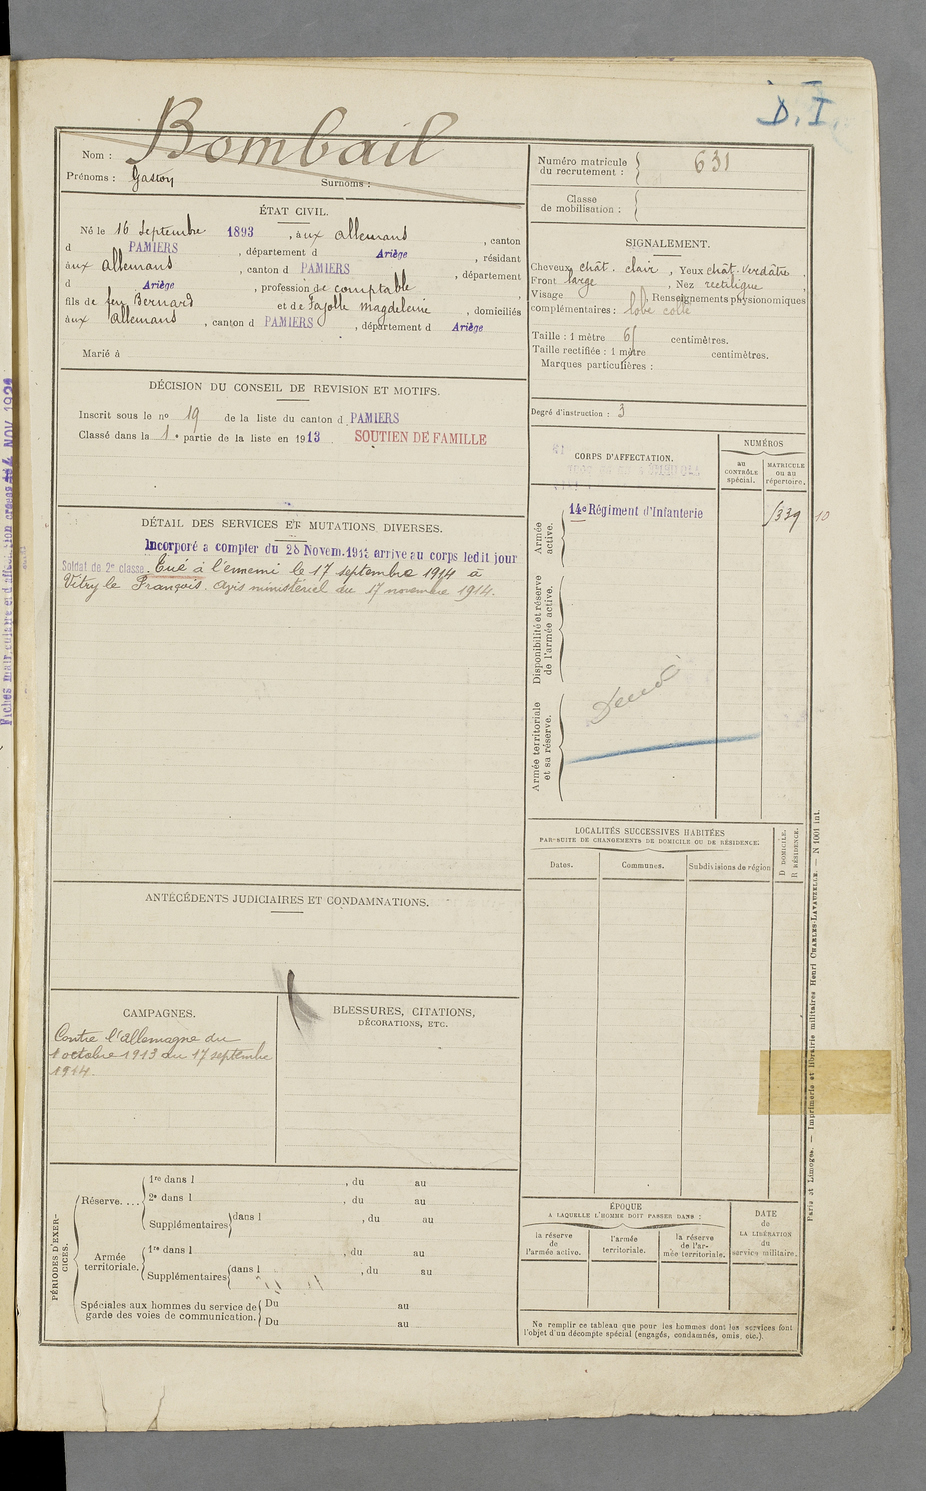 D. I.
Nom : Bombail
Prénoms : Gaston Surnoms :
Numéro matricule du recrutement : 631
Classe de mobilisation :
ÉTAT CIVIL.
Né le 16 Septembre 1893, à ux allemans, canton
d PAMIERS, département d Ariège, résidant
à ux allemans, canton d PAMIERS, département
d Ariège, profession de comptable,
fils de feu Bernard et de Fajolle Magdeleine, domiciliés
à ux allemans, canton d PAMIERS, département d Ariège
Marié à
SIGNALEMENT.
Cheveux chât. clair, Yeux chât. verdâtre,
Front large, Nez rectiligne
Visage , Renseignements physionomiques
complémentaires : lobe collé
Taille : 1 mètre centimètres.
Taille rectifiée : 1 mètre centimètres.
Marques particulières :
Degré d'instruction : 3
DÉCISION DU CONSEIL DE REVISION ET MOTIFS.
Inscrit sous le nº 19 de la liste du canton d PAMIERS
Classé dans la 1e partie de la liste en 1913 SOUTIEN DE FAMILLE
CORPS D'AFFECTATION.
NUMÉROS
au CONTRÔLE spécial.
MATRICULE ou au répertoire.
DÉTAIL DES SERVICES ET MUTATIONS DIVERSES.
Incorporé à compter du 28 Novem. 1913 arrivé au corps ledit jour
Soldat de 2e classe. Tué à l'ennemi le 17 septembre 1914 à
Vitry le François. Avis ministériel du 17 novembre 1914.
Armée active.
14e Régiment d'Infanterie
1339
10
Disponibilité et réserve de l'armée active.
Armée territoriale et sa réserve.
LOCALITÉS SUCCESSIVES HABITÉES
PAR SUITE DE CHANGEMENTS DE DOMICILE OU DE RÉSIDENCE.
Dates.
Communes.
Subdivisions de région
D DOMICILE.
R RÉSIDENCE.
ANTÉCÉDENTS JUDICIAIRES ET CONDAMNATIONS.
CAMPAGNES.
Contre l'allemagne du
1 octobre 1913 au 17 septembre
1914.
BLESSURES, CITATIONS,
DÉCORATIONS, ETC.
PÉRIODES D'EXERCICES.
Réserve....
1re dans l , du au
2e dans l , du au
Supplémentaires dans l , du au
Armée territoriale.
1re dans l , du au
Supplémentaires dans l , du au
Spéciales aux hommes du service de garde des voies de communication.
Du au
Du au
ÉPOQUE
A LAQUELLE L'HOMME DOIT PASSER DANS :
la réserve de l'armée active.
l'armée territoriale.
la réserve de l'armée territoriale.
DATE de LA LIBÉRATION du service militaire.
Ne remplir ce tableau que pour les hommes dont les services font
l'objet d'un décompte spécial (engagés, condamnés, omis, etc.).
Paris et Limoges. — Imprimerie et librairie militaires Henri CHARLES-LAVAUZELLE. — N 1001 int.